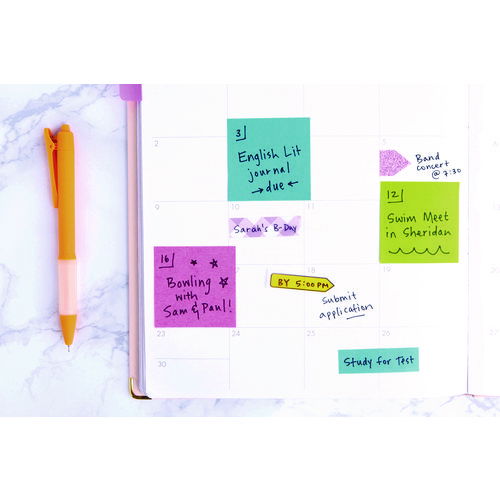 2
3
English Lit
journal
→due←
5
Band
concert
@ 7:30
9
10
Sarah's B-Day
11
12
Swim Meet
in Sheridan
16
Bowling
with
Sam & Paul!
BY 5:00PM
18
submit
application
19
23
24
25
26
Study for Test
30